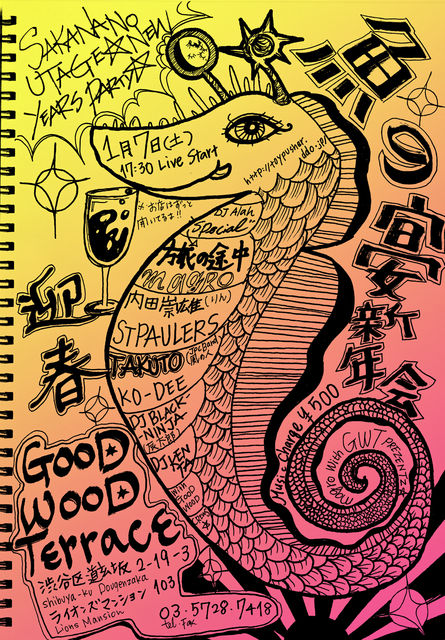 SAKANANO
UTAGE☆NEW
YEARS PARTY☆
魚の宴新年会
1月7日(土)
17:30 Live Start
http://toypusher.
dtdo.jp/
※お店はずっと
開いてるよ!!
DJ Alan
SPecial
今夜の途中
magro
内田崇広雄(りん)
ST PAULERS
TAKUTO
KO-DEE
DJ BLACK-
NINJA
DJ LEN
with
GOOD
WOOD
Music Charge ¥500
magro with GWT PRESENTZ☆
迎春
GOOD
WOOD
Terrace
渋谷区道玄坂2-19-3
shibuya-ku Dougenzaka
ライオンズマンション 103
Lions Mansion
03-5728-7418
tel Fax